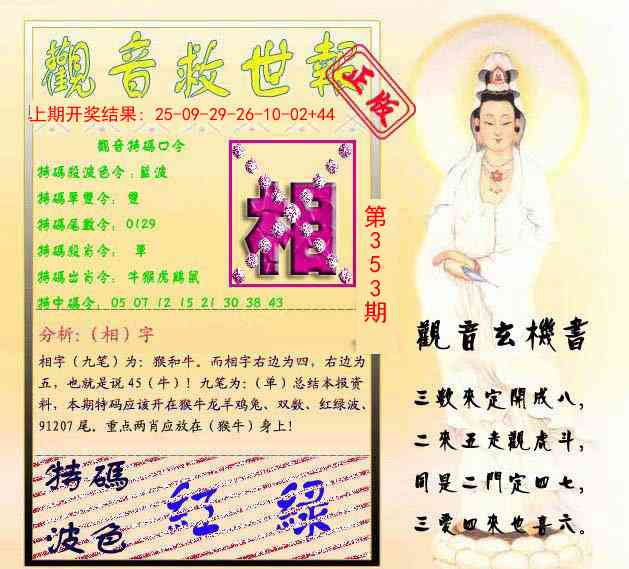 觀音救世報
正版
上期开奖结果：25-09-29-26-10-02+44
觀音特碼口令
特碼殺波色令：藍波
特碼單雙令： 雙
特碼尾數令： 0129
特碼殺肖令： 單
特碼出肖令： 牛猴虎鷄鼠
特中碼令： 05 07 12 15 21 30 38 43
相
第353期
分析:（相）字
相字（九笔）为: 猴和牛。而相字右边为四，右边为
五，也就是说 45（牛）! 九笔为:（单）总结本报资
料，本期特码应该开在猴牛龙羊鸡兔、双数、红绿波、
91207 尾。重点两肖应放在（猴牛）身上!
特碼
波色
紅 綠
觀音玄機書
三数來定開成八，
二來五走觀虎斗，
同是二門定四七，
三愛四來也喜六。